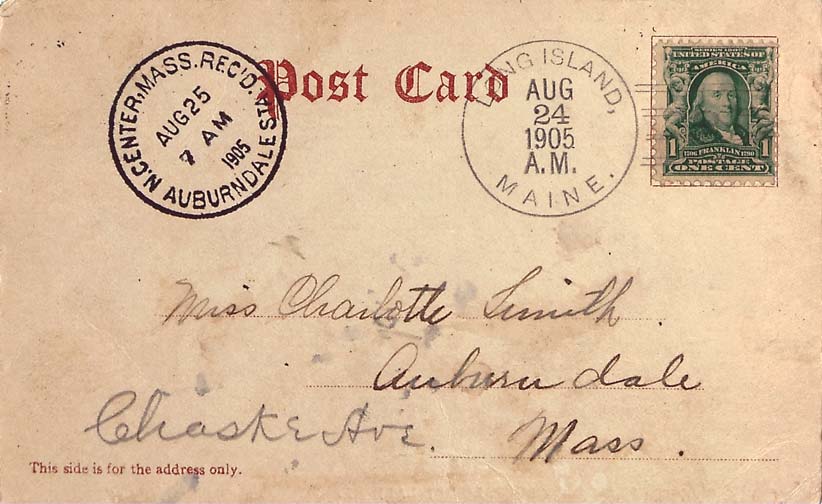 Post Card
N. CENTER, MASS. REC'D.
AUG 25
7 AM
1905
AUBURNDALE STA.
LONG ISLAND,
AUG
24
1905
A.M.
MAINE.
SERIES 1902
UNITED STATES OF
AMERICA
1 1
1706 FRANKLIN 1790
POSTAGE
ONE CENT
Miss Charlotte Smith
Auburndale
Chaske Ave.
Mass.
This side is for the address only.